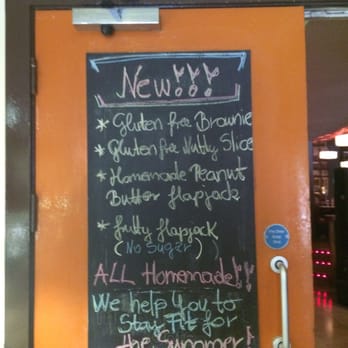 New!!!
* Gluten free Brownie
* Gluten free Nutty Slice
* Homemade Peanut
Butter flapjack
* fruity flapjack
(No Sugar)
ALL Homemade!!
We help You to
Stay Fit for
the Summer